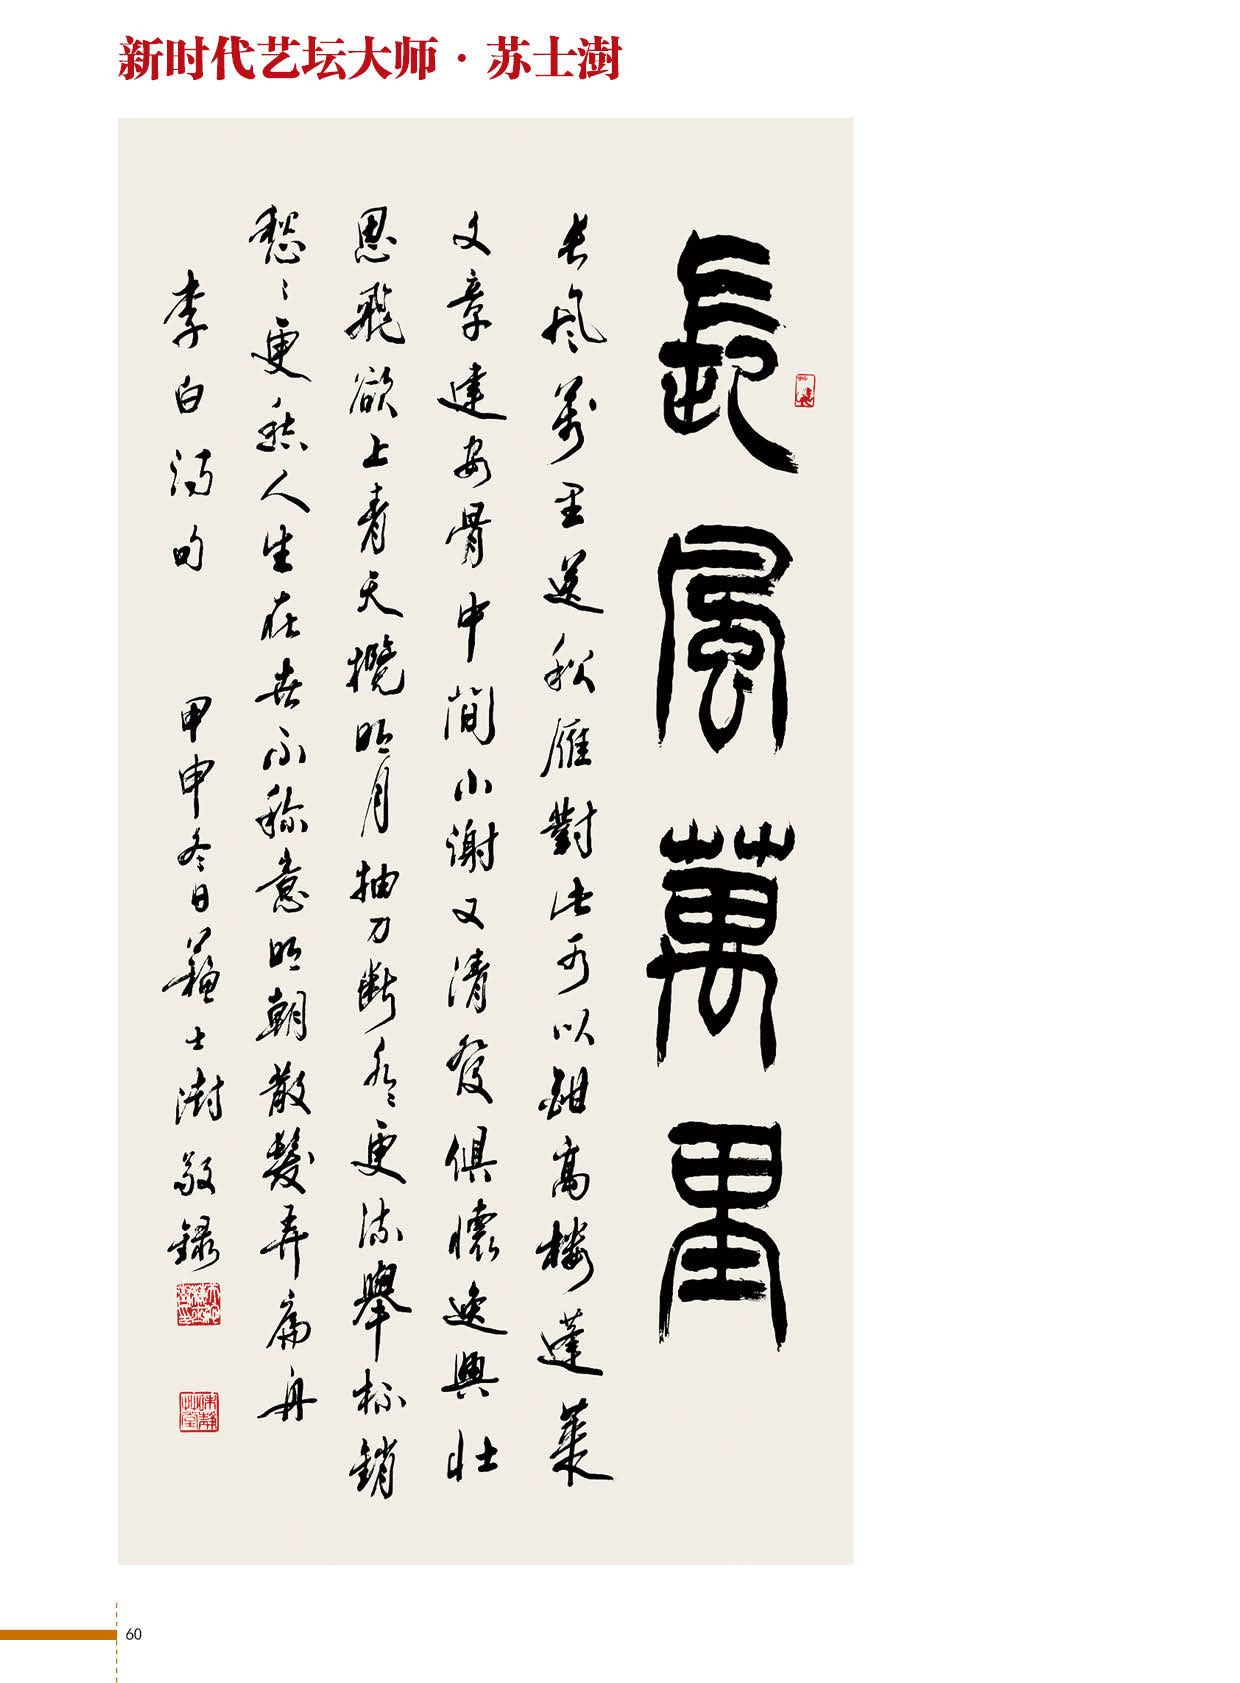 新时代艺坛大师·苏士澍
長風萬里
长风萬里送秋雁對此可以酣高楼蓬莱
文章建安骨中间小谢又清發俱懷逸興壮
思飛欲上青天攬明月抽刀断水更流舉杯銷
愁〻更愁人生在世不称意明朝散髮弄扁舟
李白诗句 甲申冬日蘇士澍敬録
60